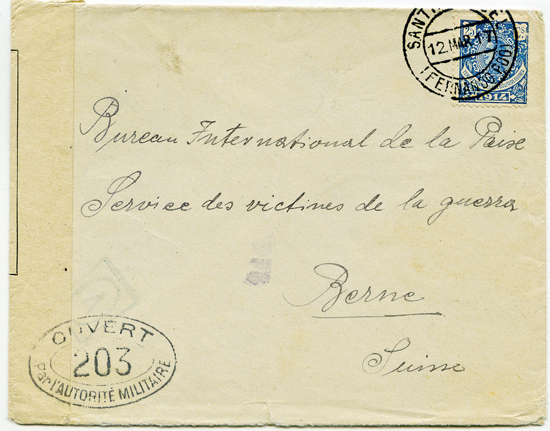 SANTA
12.MAR.17
(FERNANDO POO)
1914
Bureau International de la Paise
Service des victines de la guerra
Berne
Suisse
OUVERT
203
Par l'AUTORITÉ MILITAIRE